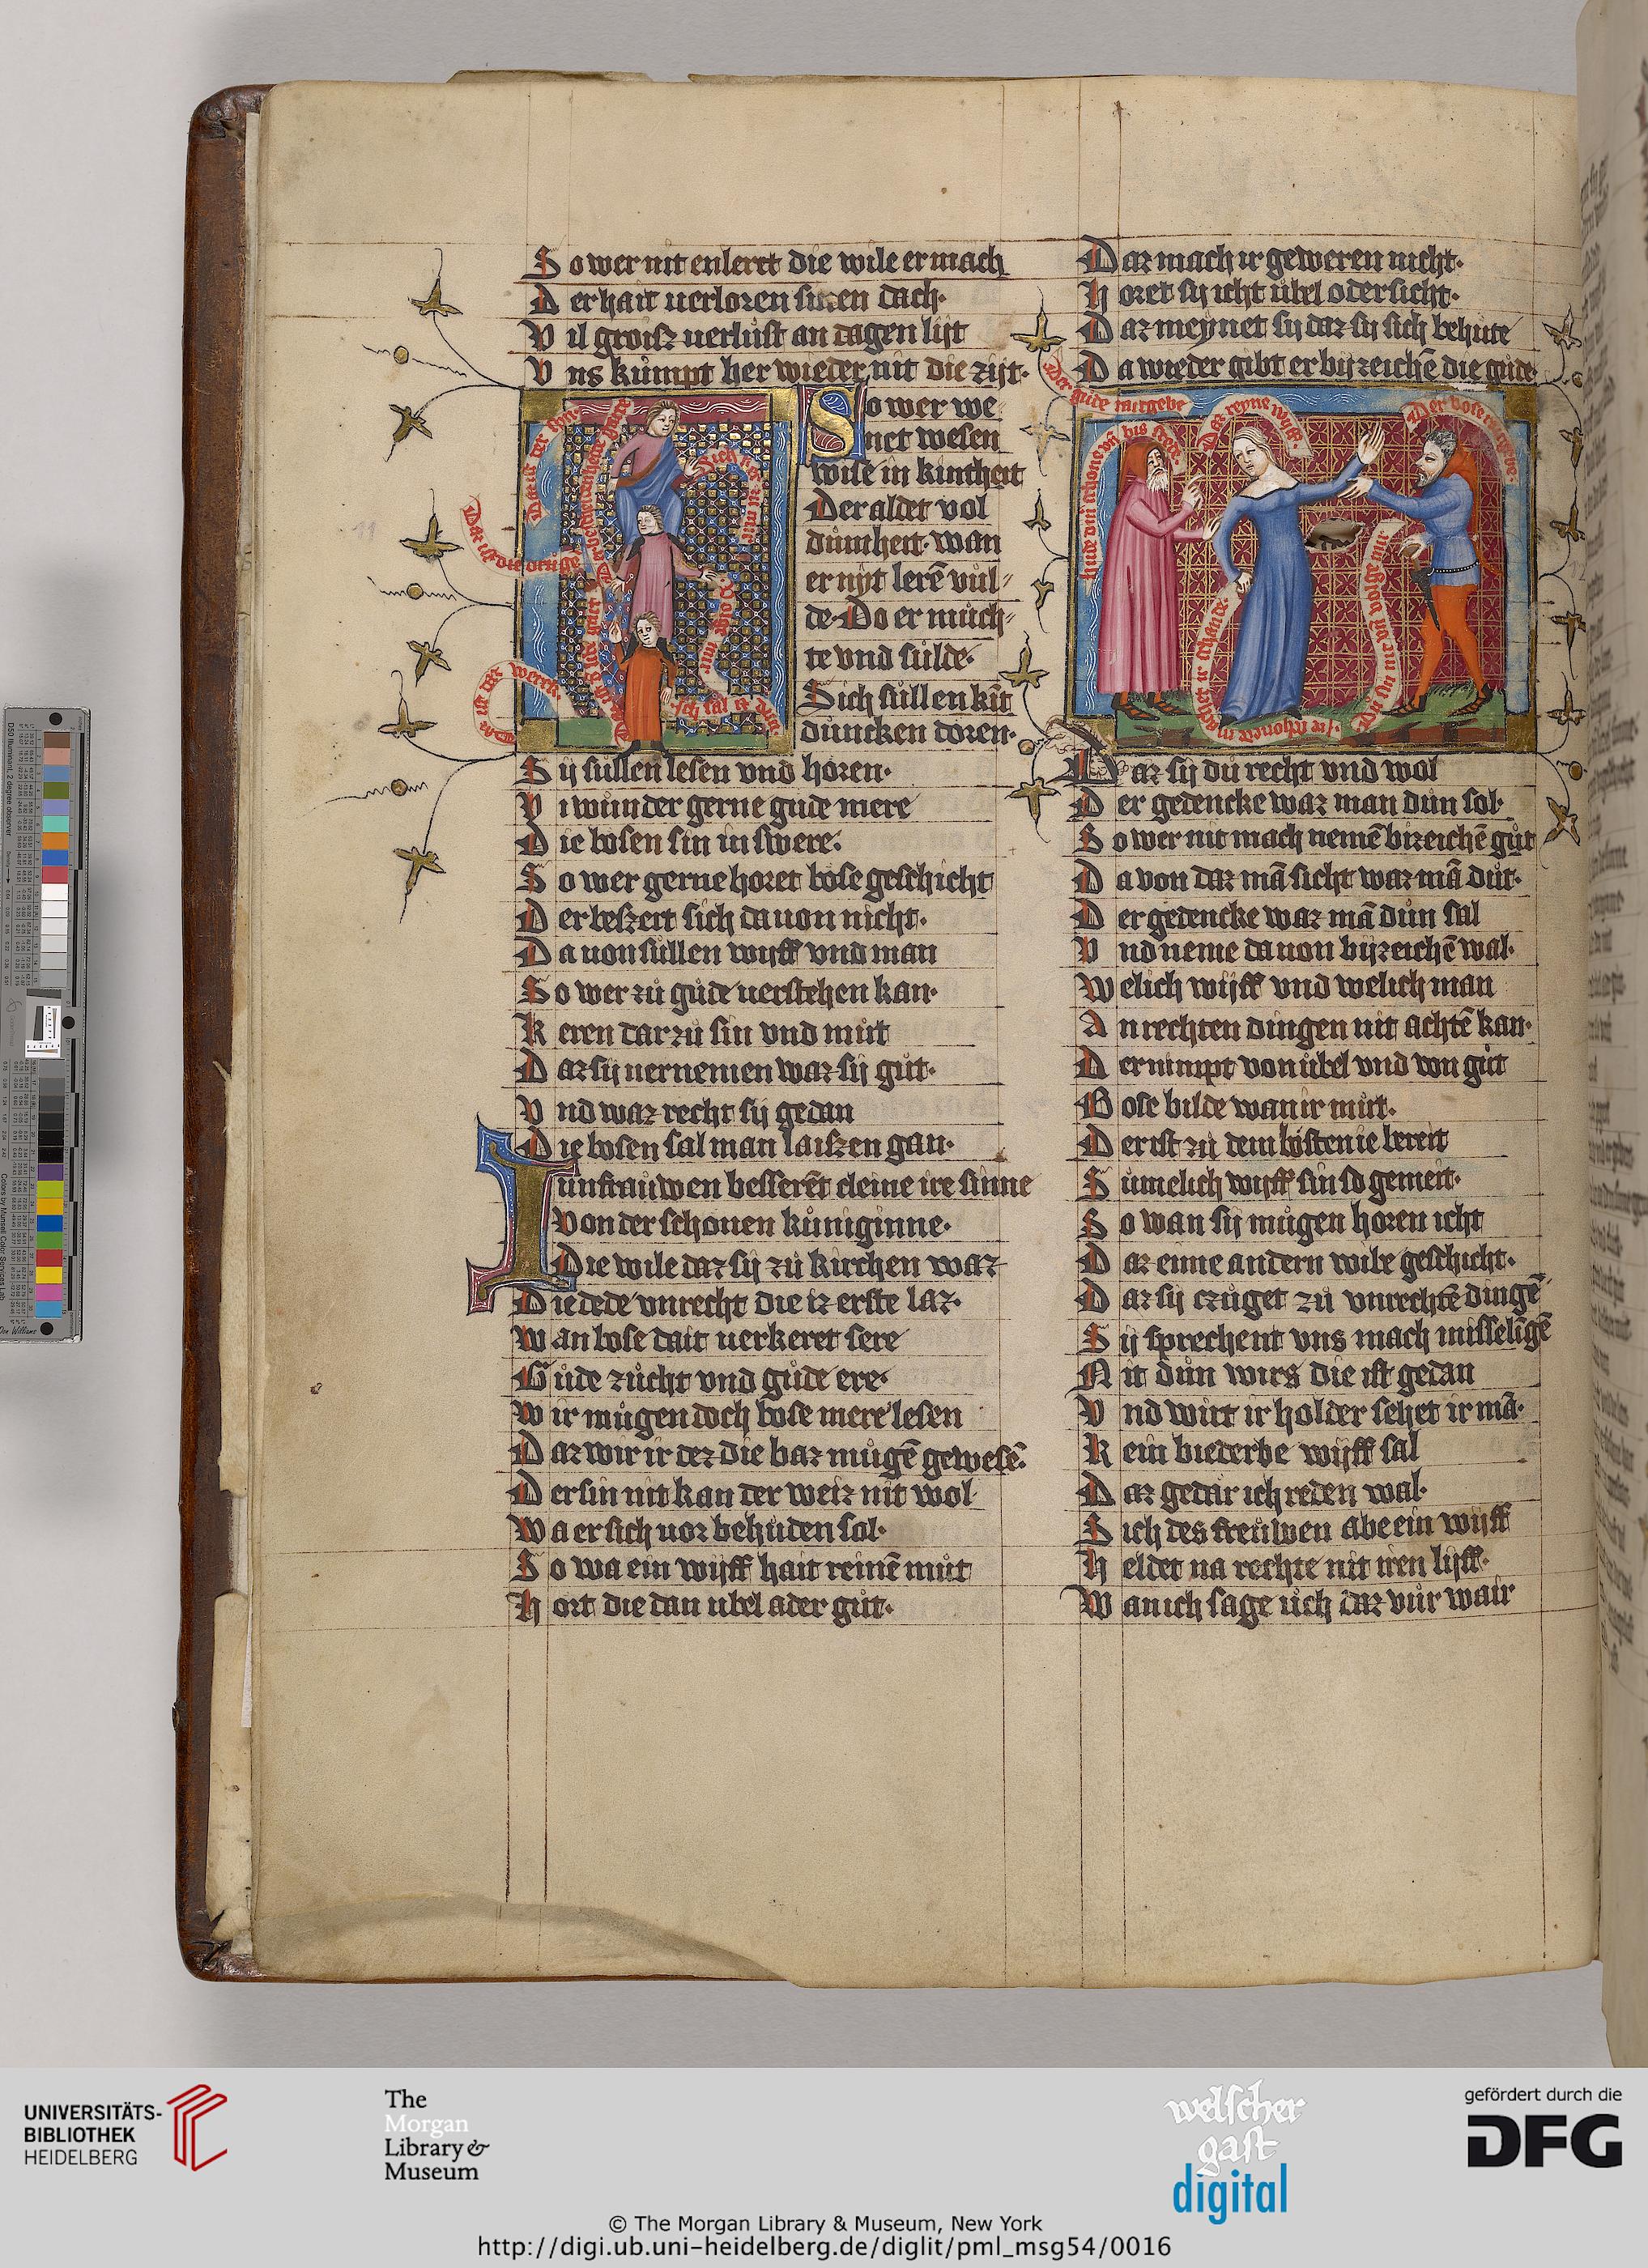 So wer nit enleret die wile er mach
Der hait uerloren sinen dach·
Vil groisz uerlůst an dagen lijt
Vns kůmpt her wieder nit die zijt·
So wer we
net wesen
wise in kintheit
Der aldet vol
důmheit· wan
er nyt lerē vůl
de· Do er můch
te vnd sůlde·
Sich sůllen kīt
důncken doren·
Sij sůllen lesen vnd horen·
Vi wůnder gerne gůde mere
Die bosen sin in swere·
So wer gerne horet bose geschicht
Der beszert sich dauon nicht·
Dauon sůllen wijff vnd man
So wer zů gůde uerstehen kan·
Keren dar zů sin vnd můt
Daz sij uernemen waz sij gůt·
Vnd waz recht sij gedan
Die bosen sal man laiszen gan·
Junfrauwen besserēt cleine ire sinne
Von der schonen kůniginne·
Die wile daz sij zů kirchen waz
Die dede vnrecht die iz erste laz·
Wan bose dait uerkeret sere
Gůde zůcht vnd gůde ere·
Wir můgen doch bose mere lesen
Daz wir ir dez die baz můgē gewesē·
Der sin nit kan der weiz nit wol
Wa er sich uor behůden sol·
So wa ein wijff hait reinē můt
Hort die dan ubel ader gůt·
Daz mach ir geweren nicht·
Horet sij icht ůbel oder sicht·
Daz meynet sij daz sij sich behůte
Da wieder gibt er bijzeichē die gůde
Daz sij dů recht vnd wol
Der gedencke waz man důn sol·
So wer nit mach nemē bizeichē gůt
Da von daz mā sicht waz mā důt·
Der gedencke waz mā důn sal
Vnd neme dauon bijzeichē wal·
Welich wijff vnd welich man
An rechten dingen nit achtē kan·
Der nimpt von ůbel vnd von gůt
Bose bilde wan ir můt·
Der ist zů dem bosten ie bereit
Sůmelich wijff sin so gemeit·
So wan sij můgen horen icht
Daz eime andern wibe geschicht·
Daz sij czůget zů vnrechtē dingē
Sij sprechent vns mach misselīgē
Nit důn wirs die ist gedan
Vnd wirt ir holder sehet ir mā·
Kein biederbe wijff sal
Daz gedar ich reden wal·
Sich des freůwen abe ein wijff
Heldet na rechte nit iren lijff·
Wan ich sage ůch daz vůr wair
Der gude ratgebe
Daz reyne wijff
Der bose ratgebe
volge mir
UNIVERSITÄTS-
BIBLIOTHEK
HEIDELBERG
The
Morgan
Library &
Museum
welscher
gast
digital
gefördert durch die
DFG
© The Morgan Library & Museum, New York
http://digi.ub.uni-heidelberg.de/diglit/pml_msg54/0016